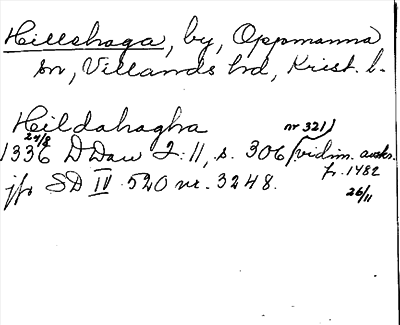 Hillshaga, by, Oppmanna
sn, Villands hd, Krist. l.
Hildahagha
1336 24/8 DDan 2:11, s. 306 (vidim. avskr.
nr 321)
fr. 1482
26/11
jfr SD IV 520 nr. 3248.